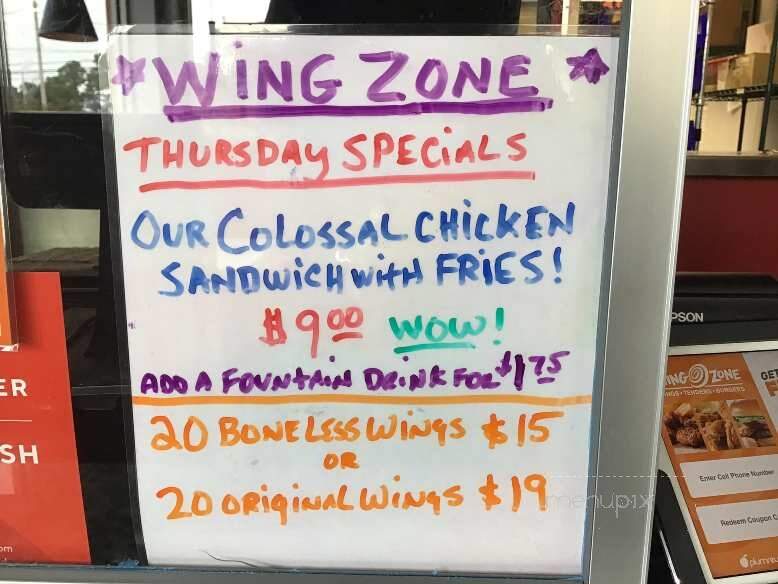 WING ZONE
THURSDAY SPECIALS
OUR COLOSSAL CHICKEN
SANDWICH WITH FRIES!
$9.00 WOW!
ADD A FOUNTAIN DRINK FOR $1.75
20 BONELESS WINGS $15
OR
20 ORIGINAL WINGS $19
menupix
ER
SH
om
PSON
ING ZONE
WINGS • TENDERS • BURGERS
GET
Enter Cell Phone Number
Redeem Coupon C